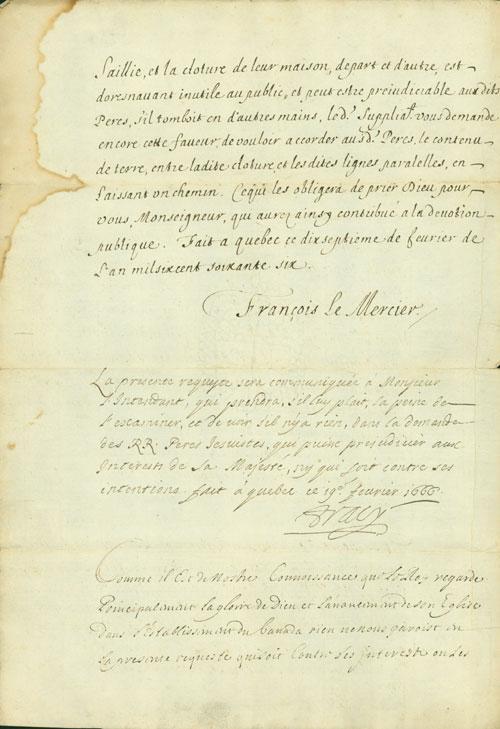 Saillie, et la cloture de leur maison, depart et d'autre, est
doresnavant inutile au public, et peut estre preiudiciable aux dits
Peres, s'il tomboit en d'autres mains, led.t Supplia.t vous demande
encore cette faveur, de vouloir accorder aux d. Peres, le contenu
de terre, entre ladite cloture, et les dites lignes paralelles, en
laissant un chemin. Ce qui les obligera de prier Dieu pour
vous, Monseigneur, qui aurez ainsy contribué à la devotion
publique. Fait a quebec ce dixseptième de fevrier de
l'an mil six cent soixante six.
François le Mercier.
La presente requeste sera communiquée à Monsieur
l'Intendant, qui prendra, s'il luy plait, la peine de
l'examiner, et de voir s'il n'y a rien, dans la demande
des RR. Peres Iesuistes, qui puisse prejudicier aux
Interests de Sa Majesté, ny qui soit contre ses
intentions. fait à quebec ce 19.e fevrier 1666.
Tracy
Comme il Est de Nostre Connoissance que le Roy regarde
Principalement la gloire de Dieu et l'avancement de son Eglise
dans l'Establissement du Canada rien ne nous paroist en
la presente requeste qui soit Contre ses Interests ou les